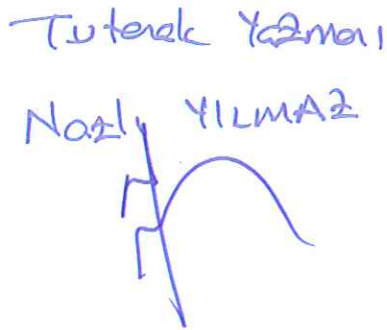 Tutanak Yazmanı
Nazlı YILMAZ